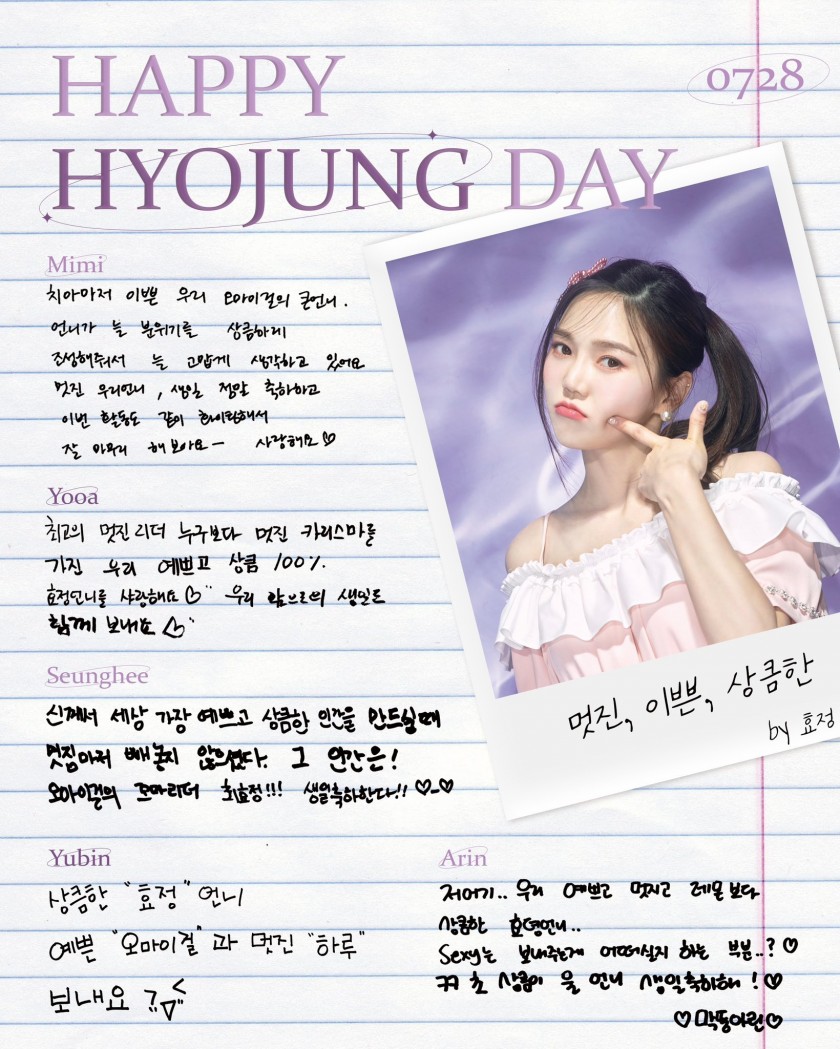 HAPPY
0728
HYOJUNG DAY
Mimi
치아마저 이쁜 우리 오마이걸의 큰언니.
언니가 늘 분위기를 상큼하게
조성해줘서 늘 고맙게 생각하고 있어요
멋진 우리언니, 생일 정말 축하하고
이번 활동도 같이 화이팅해서
잘 마무리 해보아요ㅡ 사랑해요♡
Yooa
최고의 멋진 리더 누구보다 멋진 카리스마를
가진 우리 예쁘고 상큼 100%.
효정언니를 사랑해요♡ 우리 앞으로의 생일도
함께 보내요♡
Seunghee
신께서 세상 가장 예쁘고 상큼한 인간을 만드실때
멋짐마저 빼놓지 않으셨다. 그 인간은!
오마이걸의 꼬마리더 최효정!!! 생일축하한다!! ♡_♡
멋진, 이쁜, 상큼한
by 효정
Yubin
상큼한 "효정" 언니
예쁜 "오마이걸"과 멋진 "하루"
보내요
Arin
저어기.. 우리 예쁘고 멋지고 레몬보다
상큼한 효뎡언니..
Sexy는 보내주는게 어떠실지 하는 부분..? ♡
상큼이 울 언니 생일축하해! ♡
♡막둥아린♡